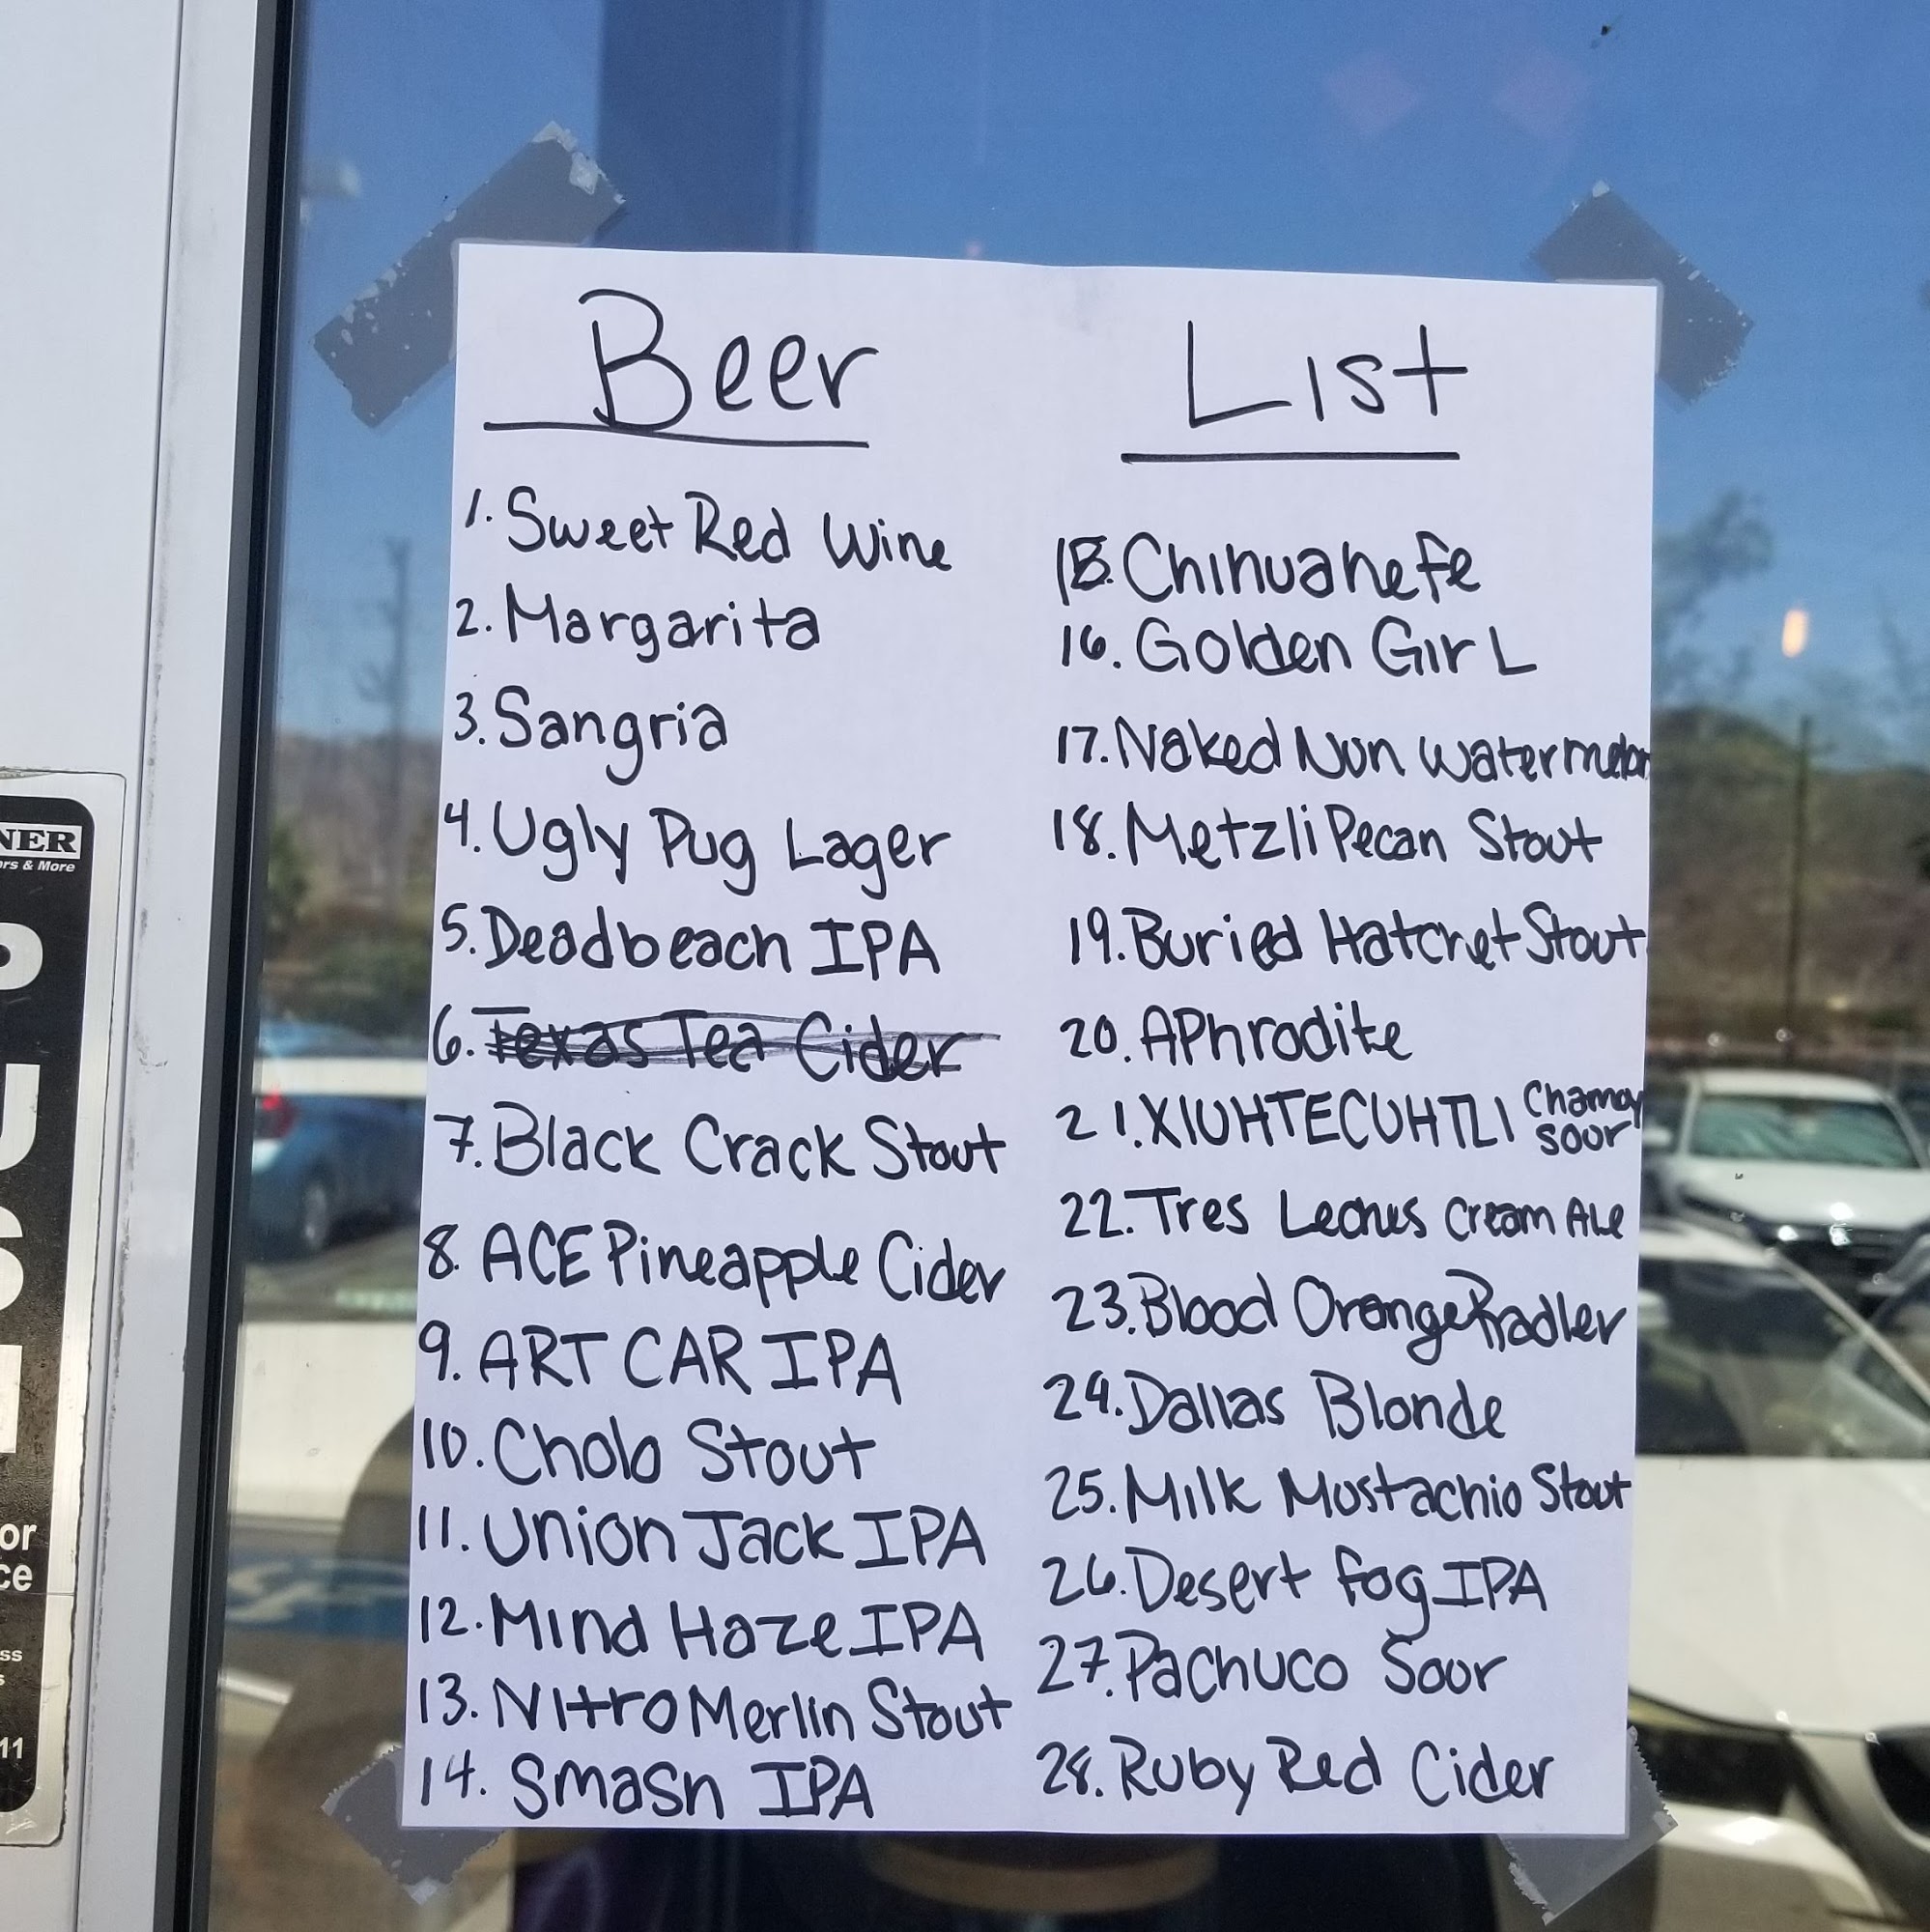 Beer List
1. Sweet Red Wine
2. Margarita
3. Sangria
4. Ugly Pug Lager
5. Deadbeach IPA
6. Texas Tea Cider
7. Black Crack Stout
8. ACE Pineapple Cider
9. ART CAR IPA
10. Cholo Stout
11. Union Jack IPA
12. Mind Haze IPA
13. Nitro Merlin Stout
14. Smash IPA
15. Chihuahefe
16. Golden Girl
17. Naked Nun Watermelon
18. Metzli Pecan Stout
19. Buried Hatchet Stout
20. APhrodite
21. XIUHTECUHTLI Chamoy
Sour
22. Tres Leches Cream Ale
23. Blood Orange Radler
24. Dallas Blonde
25. Milk Mustachio Stout
26. Desert fog IPA
27. Pachuco Sour
28. Ruby Red Cider
NER
rs & More
P
U
S
or
ce
ss
s
11